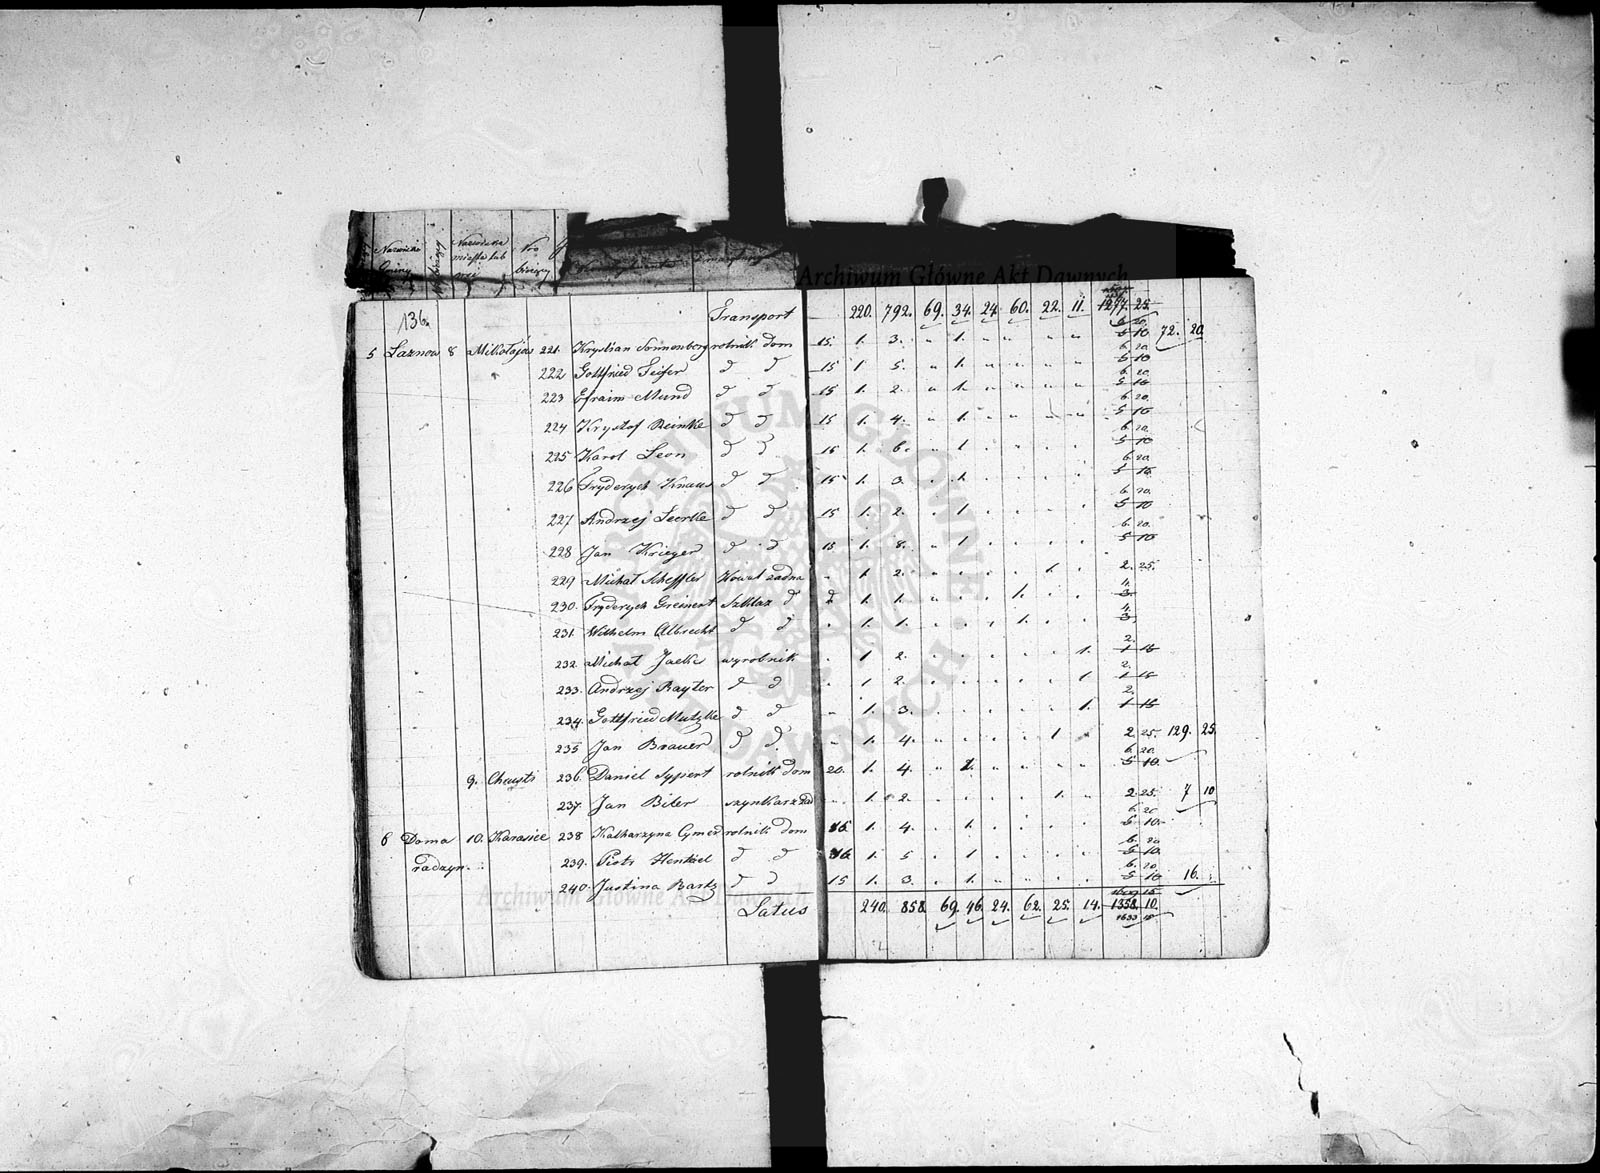 Nazwisko Gminy
Nazwiska miasta lub wsi
Archiwum Główne Akt Dawnych
136.
Transport 220. 792. 69. 34. 24. 60. 22. 11. 1277. 25.
72. 20
5 Łaznow 8 Mikołajów 221. Krystian Sonnenberg rolnik dom 15. 1. 3. " 1. " " " " 6. 20. 5 10
222 Gottfried Seifer d d 15 1 5. " 1. " " " " 6. 20. 5 10
223 Efraim Mund d d 15 1. 2. " 1. " " " " 6. 20. 5 10
224 Krysztof Reinke d d 15 1. 4. " 1. " " " " 6. 20. 5 10
225 Karol Leon d d 15 1. 6. " 1. 6. 20. 5 10
226 Fryderych Knaus d d 15 1. 3. . 1. 6. 20. 5 10
227 Andrzej d d 15 1. 2. . 1. 6. 20. 5 10
228 Jan Krieger d d 15 1. 8. " 1. 6. 20. 5 10
229 Michał Scheffler Kowal żadna . 1. 2. 1. 2. 25.
230. Fryderych Greinert Szklarz d 1. 1. 1. 4. 3.
231. Wilhelm Albrecht d d . 1. 1. 1. 4. 3.
232. Michał wyrobnik . 1 2. 1. 2. 1 15
233. Andrzej Rayter d d . 1 2. 1 2. 1 15
234. Gottfried d d 1. 3. 1. 2. 1 15
235 Jan Brauer d d. 1. 4. 1 2. 25. 129. 25.
9. Chrusti 236. Daniel Sypert rolnik dom 20. 1. 4. " 1. 6. 20. 5 10.
237. Jan Biler szynkarz żad 1. 2. 1. 2. 25. 7 10
6 Doma radzyn. 10. Karasice 238 Katharzyna rolnik dom 15. 1. 4. 1. 6. 20 5 10.
239. Piotr Henkiel d d 16. 1. 5 . 1 6. 20 5 10.
240. Justina Bartz d d 15 1. 3. . 1. 6. 20 5 10 16.
Latus 240. 858. 69. 46. 24. 62. 25. 14. 1358. 10.
1633 15
Archiwum Główne Akt Dawnych
ARCHIWUM GŁÓWNE AKT DAWNYCH